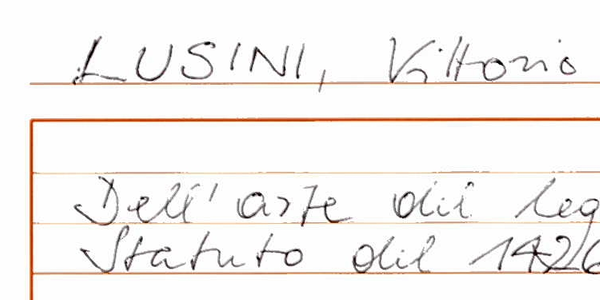 LUSINI, Vittorio
Dell'arte del leg
Statuto del 1426